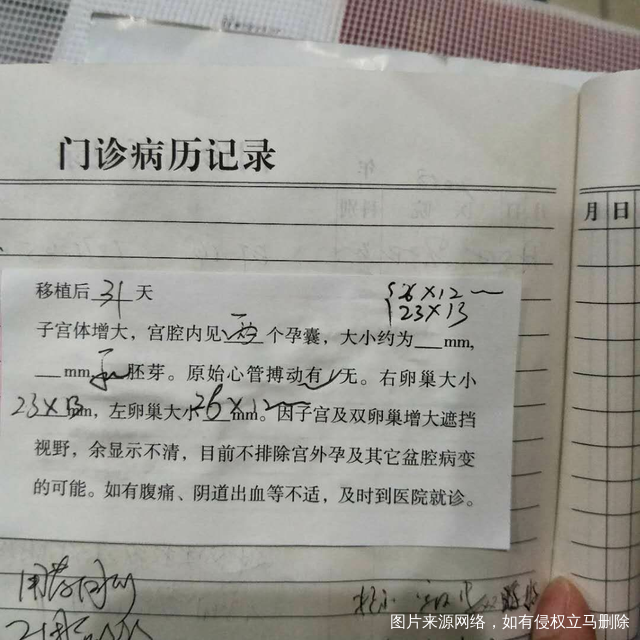 门诊病历记录
月 日
移植后 31 天
26×12
23×13
子宫体增大，宫腔内见 两 个孕囊，大小约为 __ mm,
__ mm, 胚芽。原始心管搏动有√无。右卵巢大小
23×13 mm，左卵巢大小 26×12 mm。因子宫及双卵巢增大遮挡
视野，余显示不清，目前不排除宫外孕及其它盆腔病变
的可能。如有腹痛、阴道出血等不适，及时到医院就诊。
用药同前
图片来源网络，如有侵权立马删除